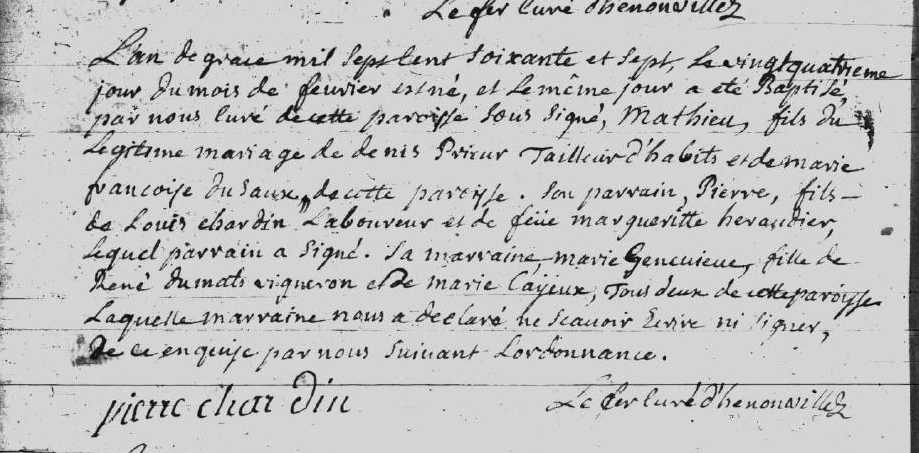 Le fer Curé d'henonvillez
L'an de grace mil Sept Cent Soixante et Sept, Le vingtquatrieme
jour du mois de fevrier est né, et Le même jour a eté Baptisé
par nous Curé de cette paroisse Sous Signé, Mathieu, fils du
Legitime mariage de denis Prieur Tailleur d'habits et de marie
francoise Dusaux, de cette paroisse. Son parrain, Pierre, fils
de Louis chardin Laboureur et de feüe margueritte heraudier,
Lequel parrain a Signé. Sa marraine, marie Genevieve, fille de
René dumats vigneron et de marie Cayeux, Tous deux de cette paroisse
Laquelle marraine nous a declaré ne Scavoir Ecrire ni Signer,
de ce enquise par nous Suivant L'ordonnance.
pierre chardin Le fer Curé d'henonvillez